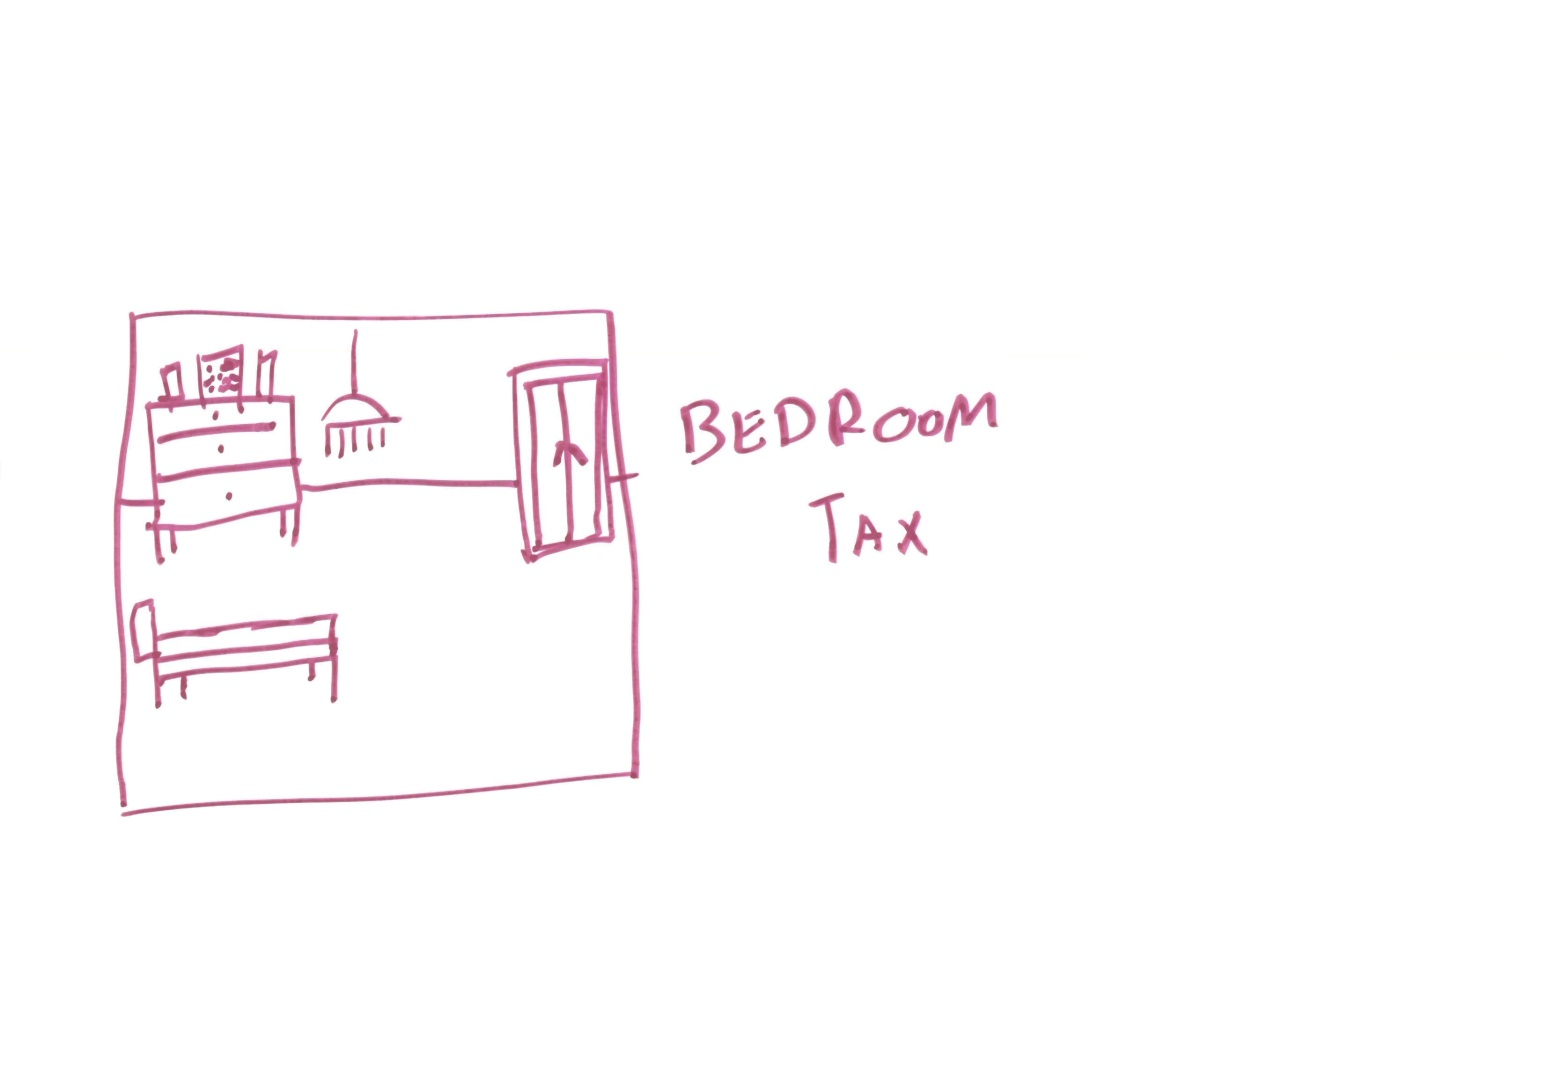 BEDROOM
TAX